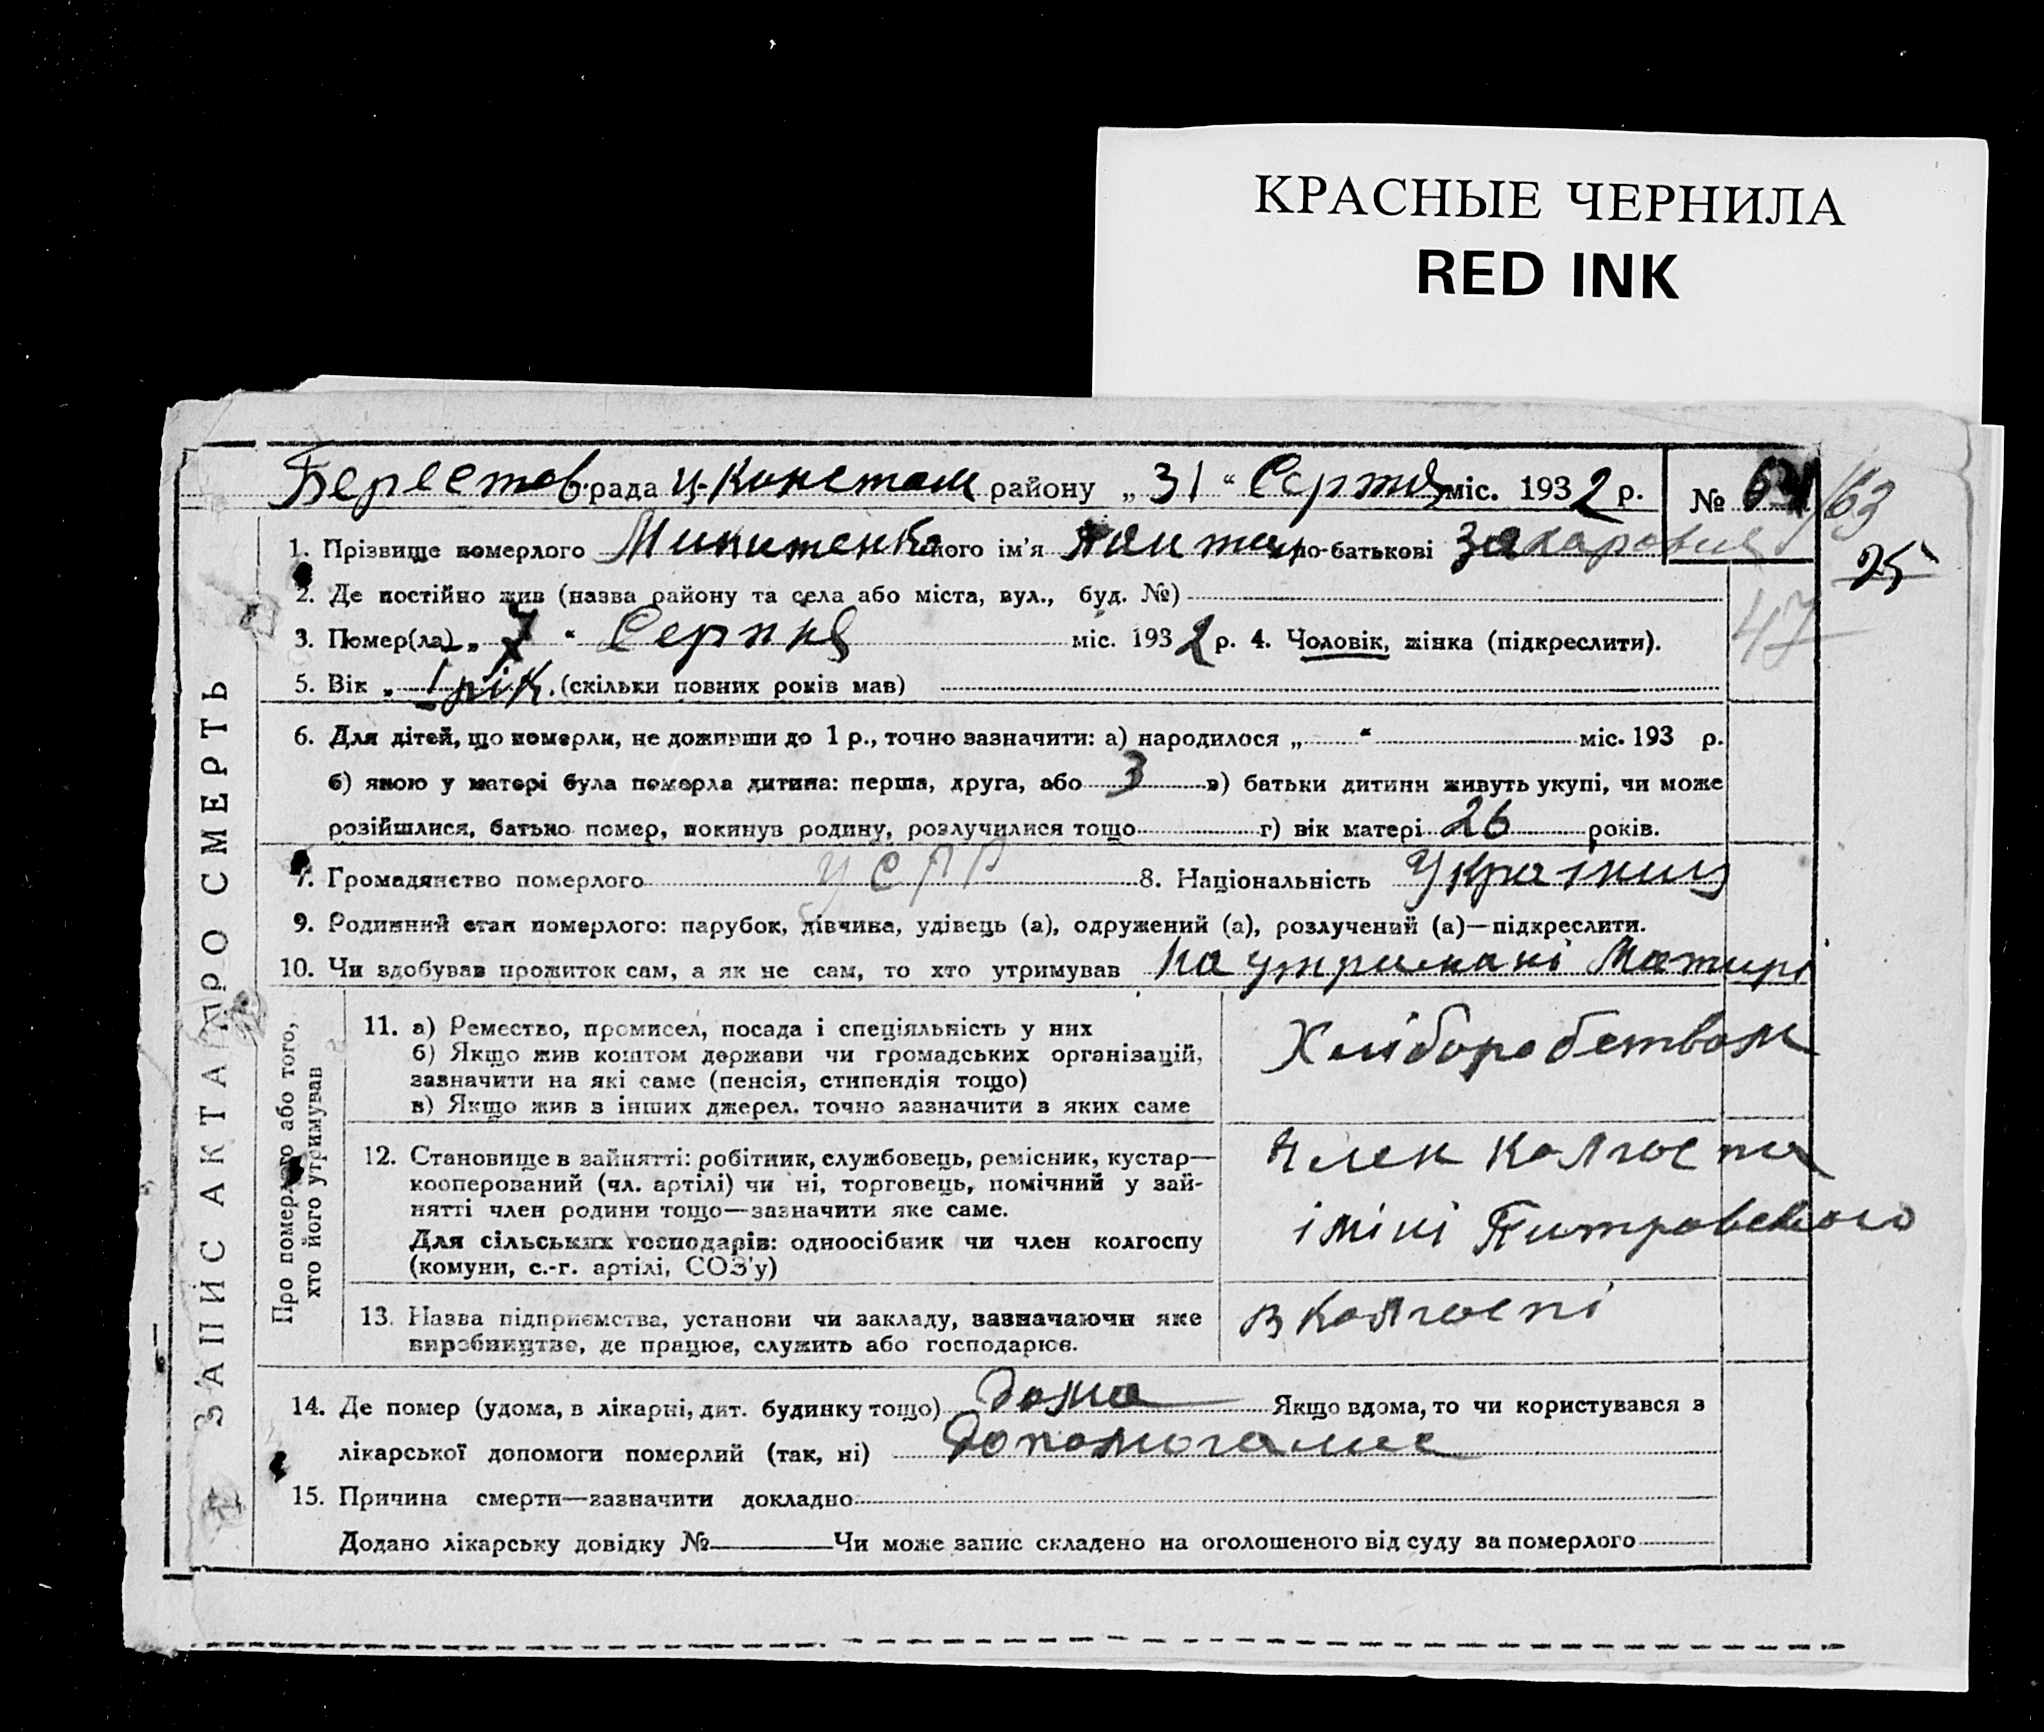 КРАСНЫЕ ЧЕРНИЛА
RED INK
Берестов. рада Ц-Констан району „ 31 “ Серпня міс. 1932 р. № 163
1. Прізвище померлого Микитенко його ім'я по-батькові Захарович 25
2. Де постійно жив (назва району та села або міста, вул., буд. №) 47
3. Помер(ла) „ 7 “ Серпня міс. 1932 р. 4. Чоловік, жінка (підкреслити).
5. Вік „ 1 рік. (скільки повних років мав)
6. Для дітей, що померли, не доживши до 1 р., точно зазначити: а) народилося „ “ міс. 193 р.
б) якою у матері була померла дитина: перша, друга, або 3 в) батьки дитини живуть укупі, чи може
розійшлися, батько помер, покинув родину, розлучилися тощо г) вік матері 26 років.
7. Громадянство померлого УСРР 8. Національність Українец
9. Родинний стан померлого: парубок, дівчина, удівець (а), одружений (а), розлучений (а)—підкреслити.
10. Чи здобував прожиток сам, а як не сам, то хто утримував На утримані Матирі
ЗАПИС АКТА ПРО СМЕРТЬ
Про померлого або того,
хто його утримував
11. а) Ремество, промисел, посада і спеціяльність у них
б) Якщо жив коштом держави чи громадських організацій,
зазначити на які саме (пенсія, стипендія тощо)
в) Якщо жив з інших джерел. точно зазначити з яких саме
Хліборобством
12. Становище в зайнятті: робітник, службовець, ремісник, кустар—
кооперований (чл. артілі) чи ні, торговець, помічний у зай-
нятті член родини тощо—зазначити яке саме.
Для сільських господарів: одноосібник чи член колгоспу
(комуни, с.-г. артілі, СОЗ'у)
Член Колгоспа
іміні Питровского
13. Назва підприємства, установи чи закладу, зазначаючи яке
виробництво, де працює, служить або господарює.
в Колгоспі
14. Де помер (удома, в лікарні, дит. будинку тощо) Дома Якщо вдома, то чи користувався з
лікарської допомоги померлий (так, ні)
15. Причина смерти—зазначити докладно
Додано лікарську довідку № Чи може запис складено на оголошеного від суду за померлого